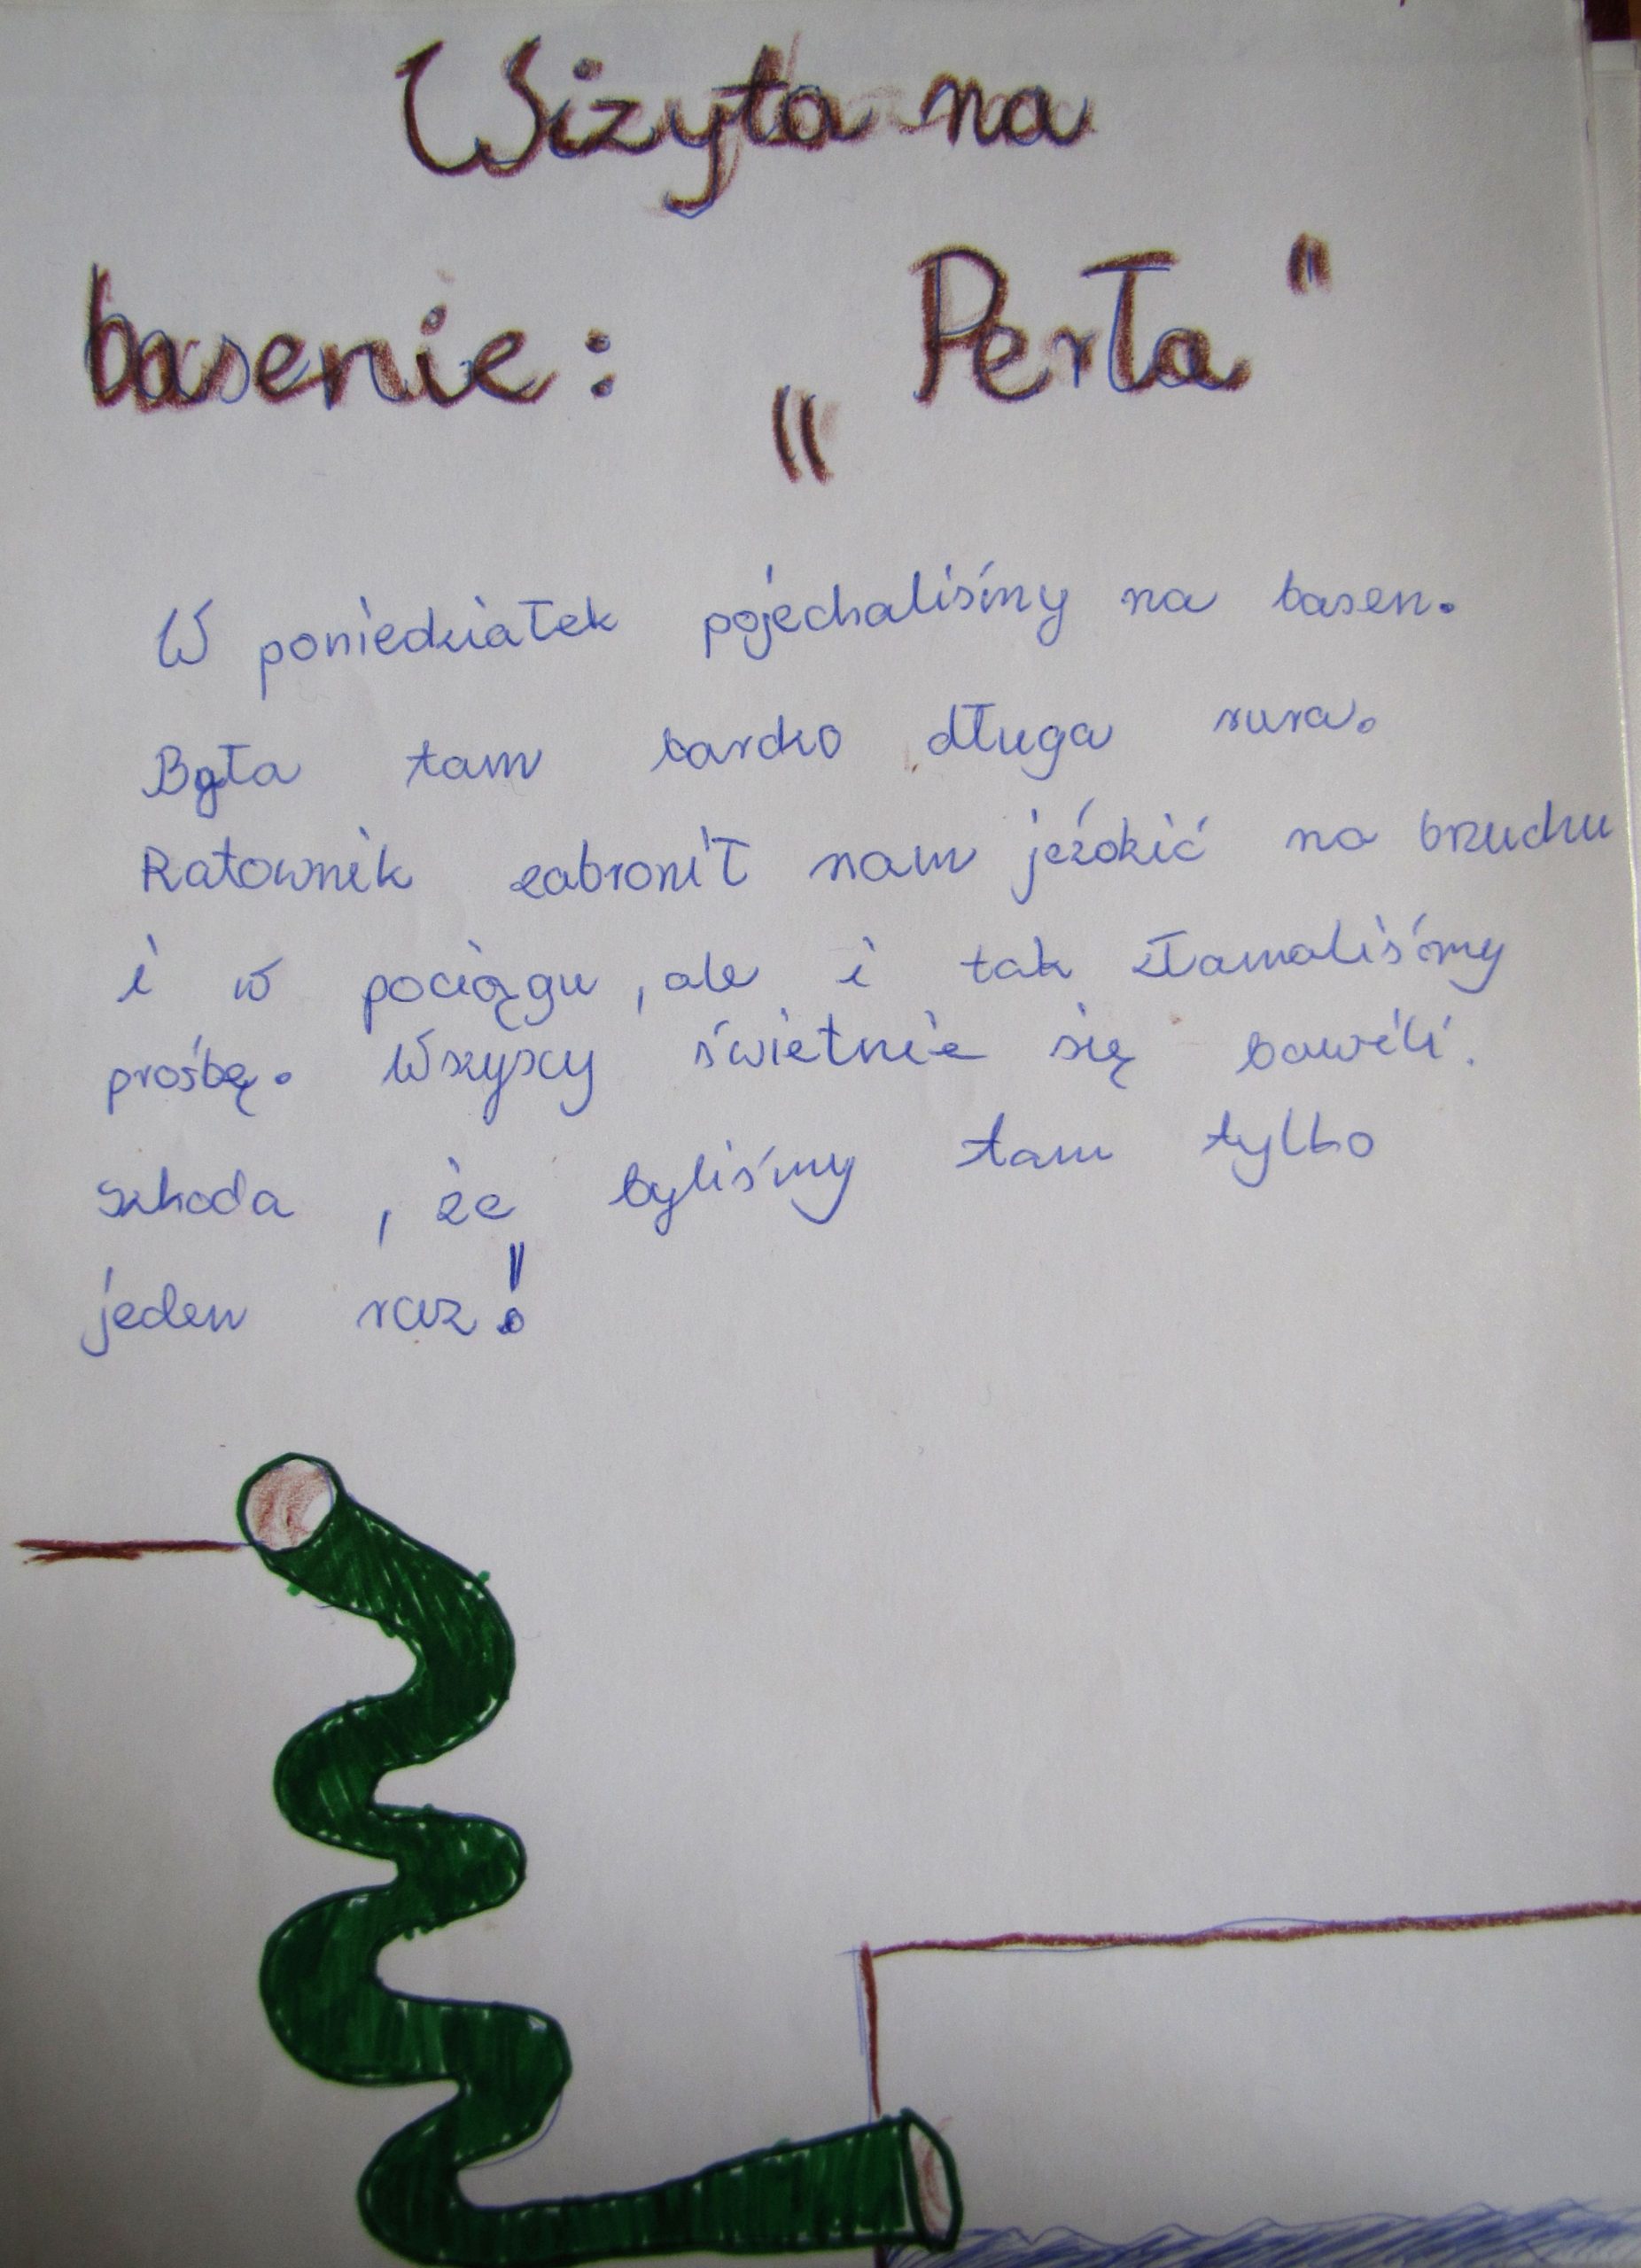 Wizyta na
basenie: „Perła"
W poniedziałek pojechaliśmy na basen.
Była tam bardzo długa rura.
Ratownik zabronił nam jeździć na brzuchu
i w pociągu, ale i tak złamaliśmy
prośbę. Wszyscy świetnie się bawili.
szkoda, że byliśmy tam tylko
jeden raz!